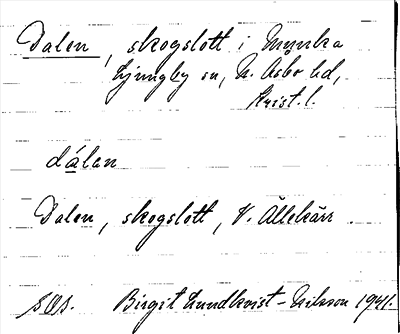 Dalen, skogslott i Munka
Ljungby sn, N. Åsbo hd,
Krist. l.
dálen
Dalen, skogslott, V. Ällekärr
Birgit Lundkvist-Nilsson 1941.